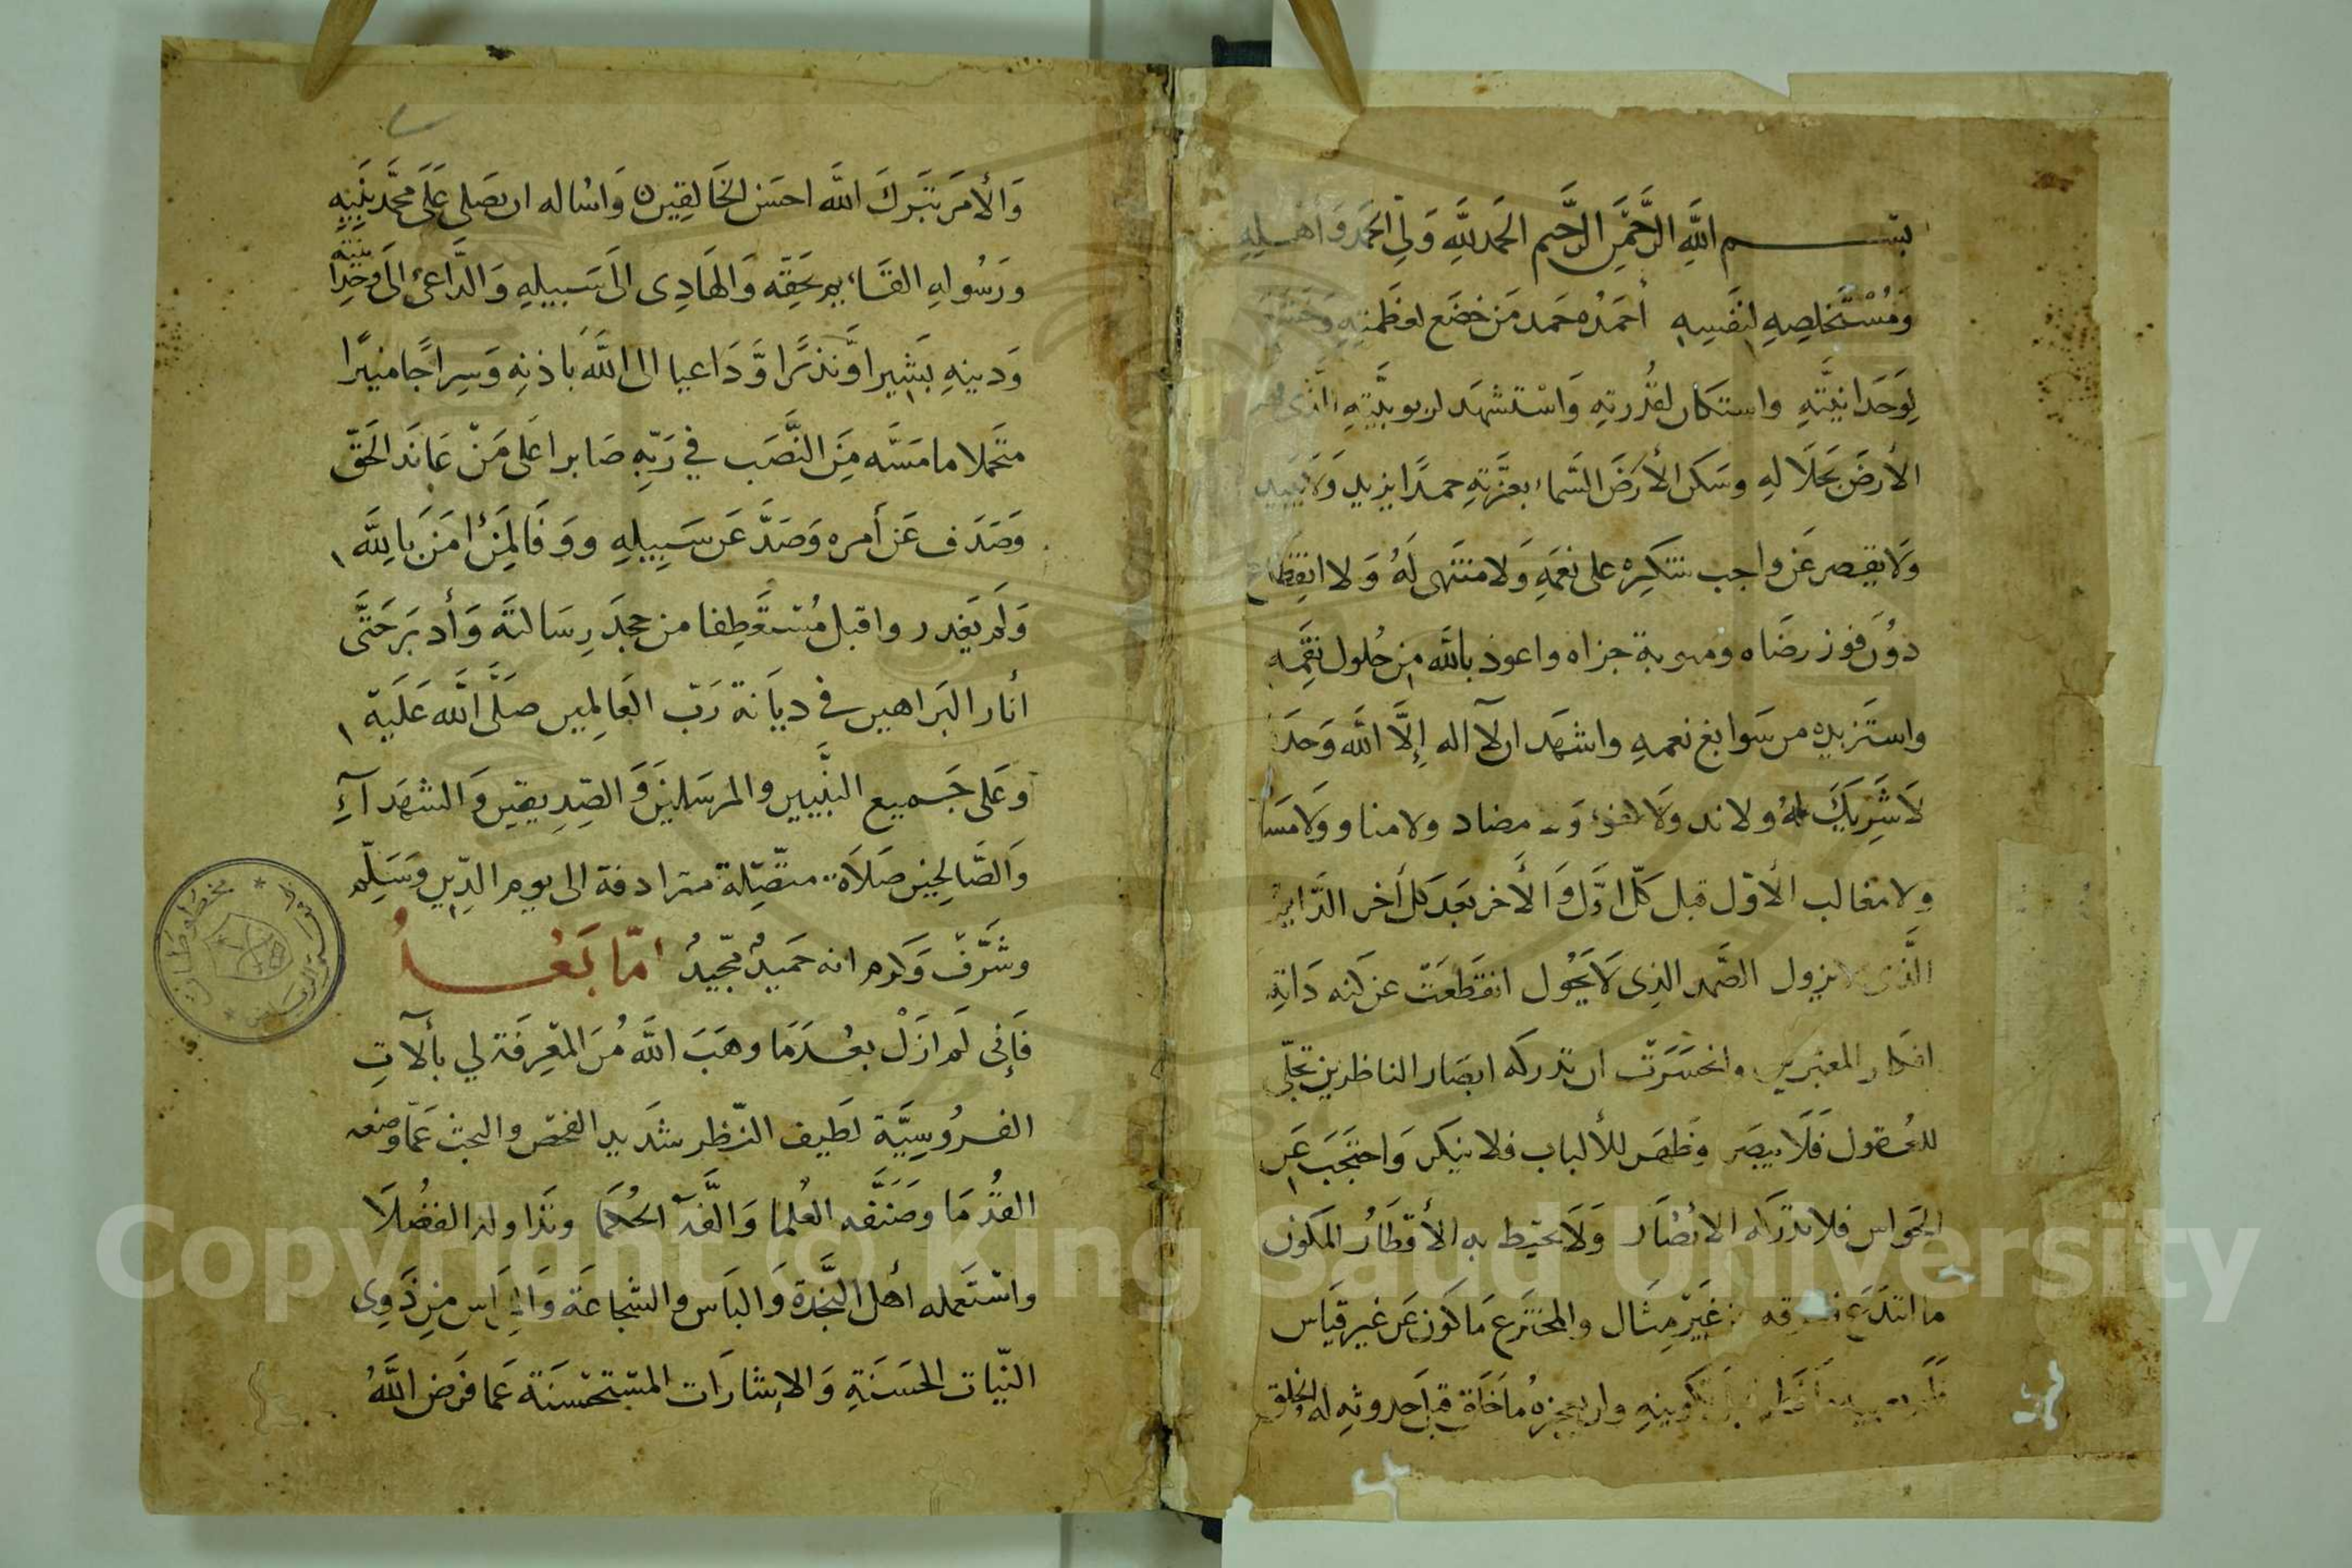 بسم الله الرحمن الرحيم الحمد لله ولي الحمد وأهله
ومستخلصه لنفسه أحمده حمد من خضع لعظمته
لوحدانيته واستكان لقدرته واستشهد لربوبيته الذي
الأرض بجلاله وسكن الأرض السماء بعزته حمدا يزيد ولا يبيد
ولا يقصر عن واجب شكره على نعمه ولا منتهى له ولا انقطاع
دون فوز رضاه ومو بة جزاه واعوذ بالله من حلول نقمه
واستزيده من سوابغ نعمه واشهد ان لا اله إلا الله وحده
لا شريك له ولا ند ولا مضاد ولا مناو ولا
ولا مغالب الأول قبل كل اول والأخر بعد كل أخر الدايم
الذي لا يزول الصمد الذي لا يحول انقطعت عن كنه ذاته
افكار المعتبرين وانحسرت ان تدركه ابصار الناظرين تجلى
للعقول فلا يبصر وظهر للألباب فلا ينكر واحتجب عن
الحواس فلا تدركه الابصار ولا تحيط به الأقطار المكون
ما ابتدع غير مثال والمخترع ما كون عن غير قياس
تكوينه قبل حدوثه له الخلق
والأمر تبرك الله احسن الخالقين واساله ان يصلي على محمد نبيه
ورسوله القايم بحقه والهادى الى سبيله والداعى الى وحدانيته
ودينه بشيرا ونذيرا وداعيا الى الله باذنه وسراجا منيرا
متحملا ما مسه من النصب في ربه صابرا على من عاند الحق
وصدف عن أمره وصد عن سبيله ووفا لمن امن بالله
ولم يغدر واقبل مستعطفا من جحد رسالته وأدبر حتى
أنار البراهين في ديانة رب العالمين صلى الله عليه
وعلى جميع النبيين والمرسلين والصديقين والشهدآء
والصالحين صلاة متصلة مترادفة الى يوم الدين وسلم
وشرف وكرم انه حميد مجيد امّا بعد
فإنى لم ازل بعد ما وهب الله من المعرفة لي بألات
الفروسية لطيف النظر شديد الفحص والبحث عما وضعه
القدما وصنفه العلما والفه الحكما وتداوله الفضلا
واستعمله أهل النجدة والباس والشجاعة والمراس من ذوى
النيات الحسنة والإشارات المستحسنة عما فرض الله
مخطوطات
Copyright © King Saud University
1957